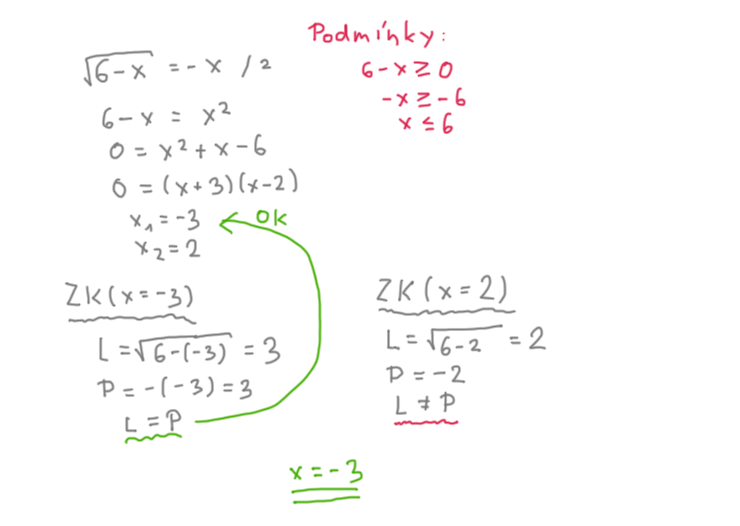 Podmínky:
6-x ≥ 0
-x ≥ -6
x ≤ 6
√6-x = -x /²
6-x = x²
0 = x²+x-6
0 = (x+3)(x-2)
x₁ = -3
OK
x₂ = 2
ZK(x=-3)
L = √6-(-3) = 3
P = -(-3) = 3
L = P
ZK(x=2)
L = √6-2 = 2
P = -2
L ≠ P
x = -3